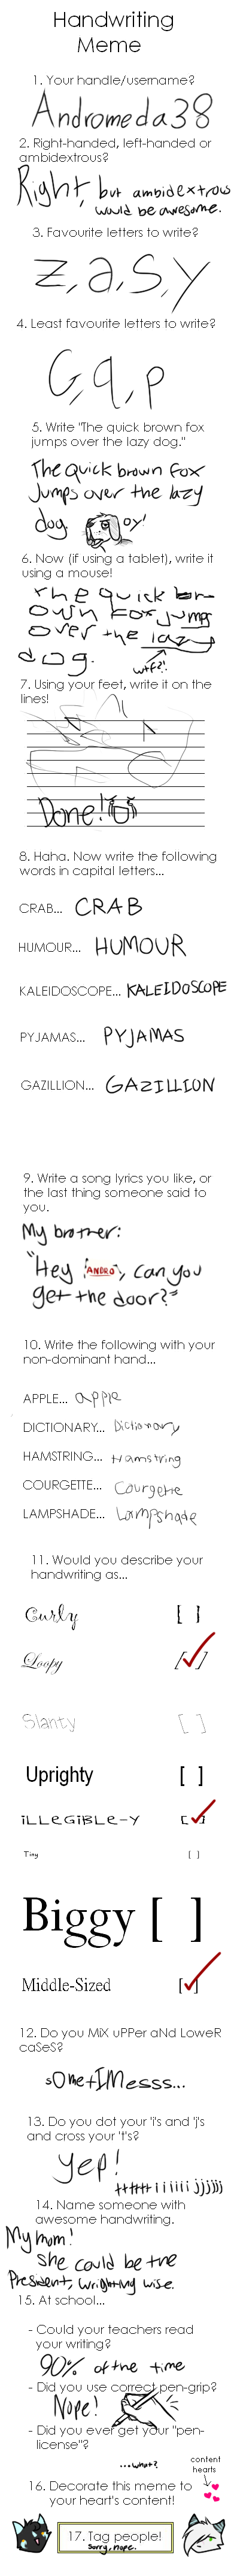 Handwriting
Meme
1. Your handle/username?
Andromeda38
2. Right-handed, left-handed or
ambidextrous?
Right, but ambidextrous
would be awesome.
3. Favourite letters to write?
z, a, s, y
4. Least favourite letters to write?
G, q, p
5. Write "The quick brown fox
jumps over the lazy dog."
The quick brown fox
jumps over the lazy
dog. oy!
6. Now (if using a tablet), write it
using a mouse!
The quick br
own fox jumps
over the lazy
dog. wtf?!
7. Using your feet, write it on the
lines!
Done!
8. Haha. Now write the following
words in capital letters...
CRAB... CRAB
HUMOUR... HUMOUR
KALEIDOSCOPE... KALEIDOSCOPE
PYJAMAS... PYJAMAS
GAZILLION... GAZILLION
9. Write a song lyrics you like, or
the last thing someone said to
you.
My brother:
"Hey ANDRO, can you
get the door?"
10. Write the following with your
non-dominant hand...
APPLE... apple
DICTIONARY... Dictionary
HAMSTRING... Hamstring
COURGETTE... Courgette
LAMPSHADE... Lampshade
11. Would you describe your
handwriting as...
Curly [ ]
Loopy [ ]
Slanty [ ]
Uprighty [ ]
iLLeGiBLe-Y [ ]
Tiny [ ]
Biggy [ ]
Middle-Sized [ ]
12. Do you MiX uPPer aNd LoweR
caSeS?
sOmetIMesss...
13. Do you dot your 'i's and 'j's
and cross your 't's?
yep!
ttttttt iiiiiii jjjjjj
14. Name someone with
awesome handwriting.
My mom!
She could be the
President, wrighting wise.
15. At school...
- Could your teachers read
your writing?
90% of the time
- Did you use correct pen-grip?
Nope!
- Did you ever get your "pen-
license"?
...what?
content
hearts
16. Decorate this meme to
your heart's content!
17. Tag people!
Sorry, nope.